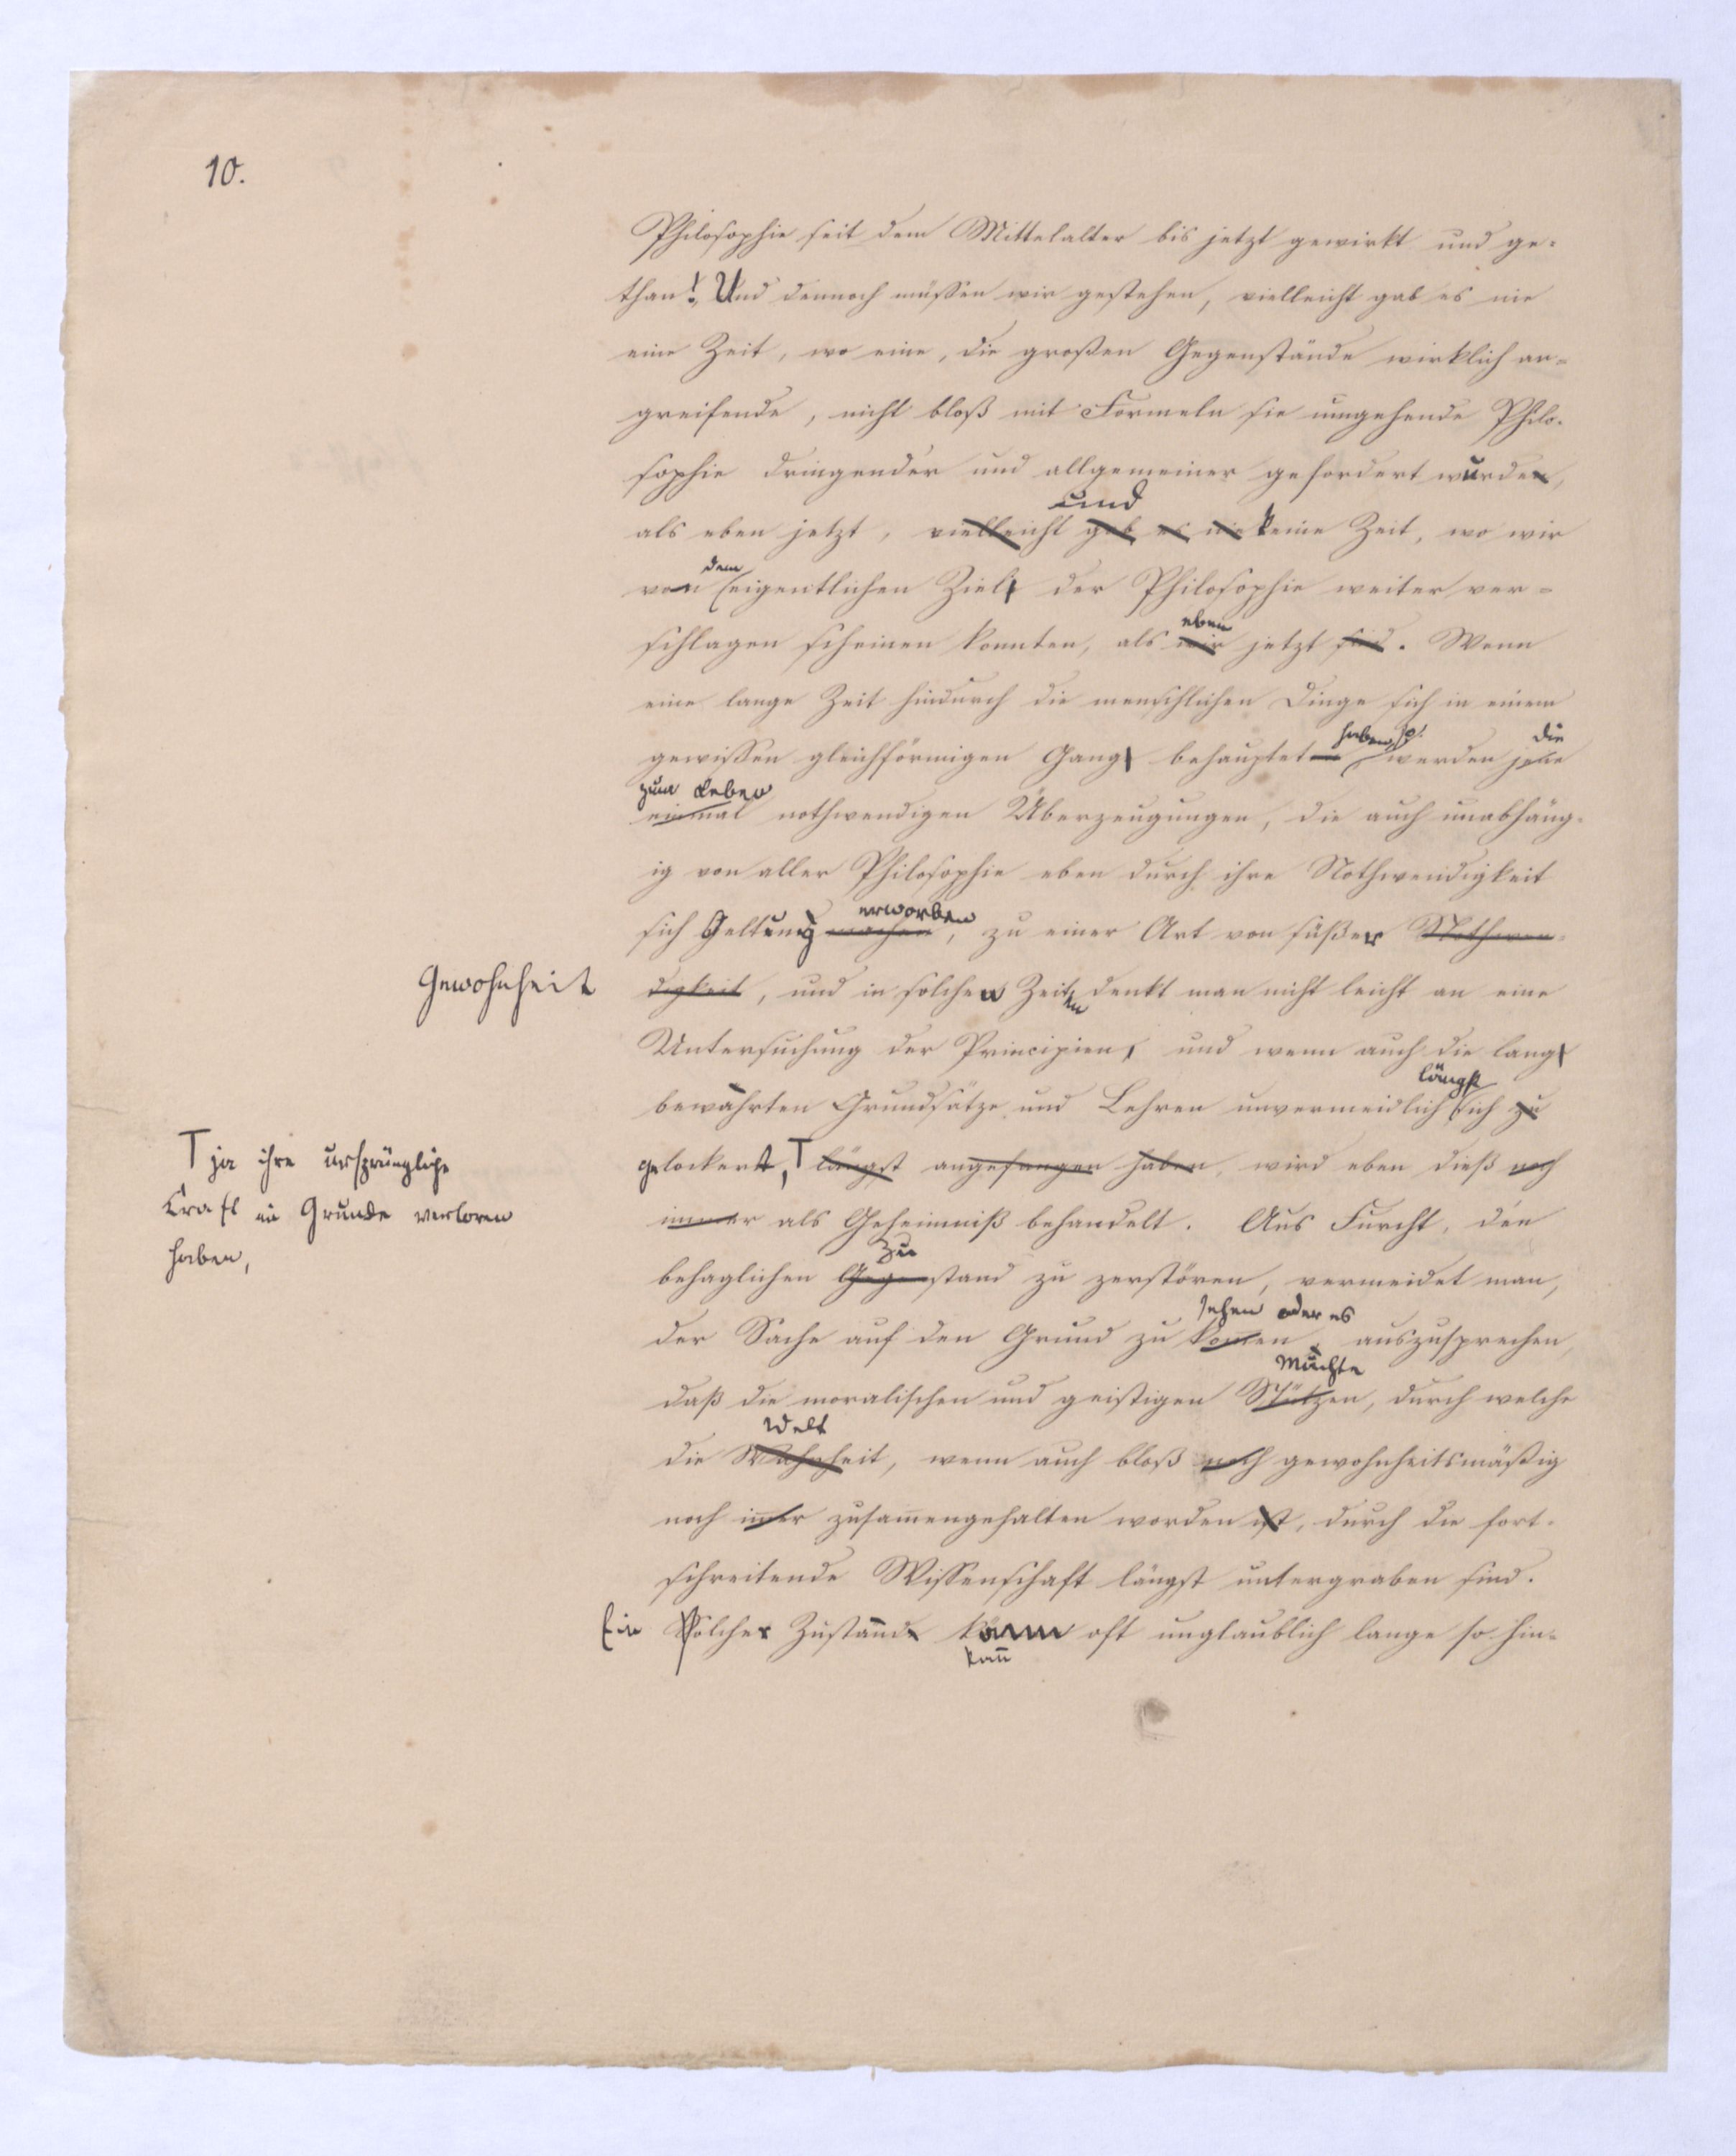 10.
Philosophie seit dem Mittelalter bis jetzt gewirkt und ge-
than! Und dennoch müssen wir gestehen, vielleicht gab es nie
eine Zeit, wo eine, die großen Gegenstände wirklich an-
greifende, nicht bloß mit Formeln sie umgehende Philo-
sophie dringender und allgemeiner gefordert wurde,
und
als eben jetzt, vielleicht gab es nie keine Zeit, wo wir
dem
von eigentlichen Ziel der Philosophie weiter ver-
eben
schlagen scheinen konnten, als wir jetzt sind. Wenn
eine lange Zeit hindurch die menschlichen Dinge sich in einem
haben, so die
gewissen gleichförmigen Gang behauptet werden jene
zum Leben
einmal nothwendigen Überzeugungen, die auch unabhäng-
ig von aller Philosophie eben durch ihre Nothwendigkeit
erworben
sich Geltung machen, zu einer Art von süßer Nothwen-
Gewohnheit
digkeit, und in solchen Zeiten denkt man nicht leicht an eine
Untersuchung der Principien, und wenn auch die lang
längst
bewährten Grundsätze und Lehren unvermeidlich sich zu
gelockert, T längst angefangen haben, wird eben dieß noch
T ja ihre ursprüngliche
Kraft im Grunde verloren
haben,
immer als Geheimniß behandelt. Aus Furcht, den
Zu
behaglichen Gegenstand zu zerstören, vermeidet man,
sehen oder es
der Sache auf den Grund zu kommen, auszusprechen,
Mächte
daß die moralischen und geistigen Stützen, durch welche
Welt
die Wahrheit, wenn auch bloß noch gewohnheitsmäßig
noch im̄er zusam̄engehalten worden ist, durch die fort-
schreitende Wissenschaft längst untergraben sind.
Ein solcher Zustand kann oft unglaublich lange so hin-
kan̄